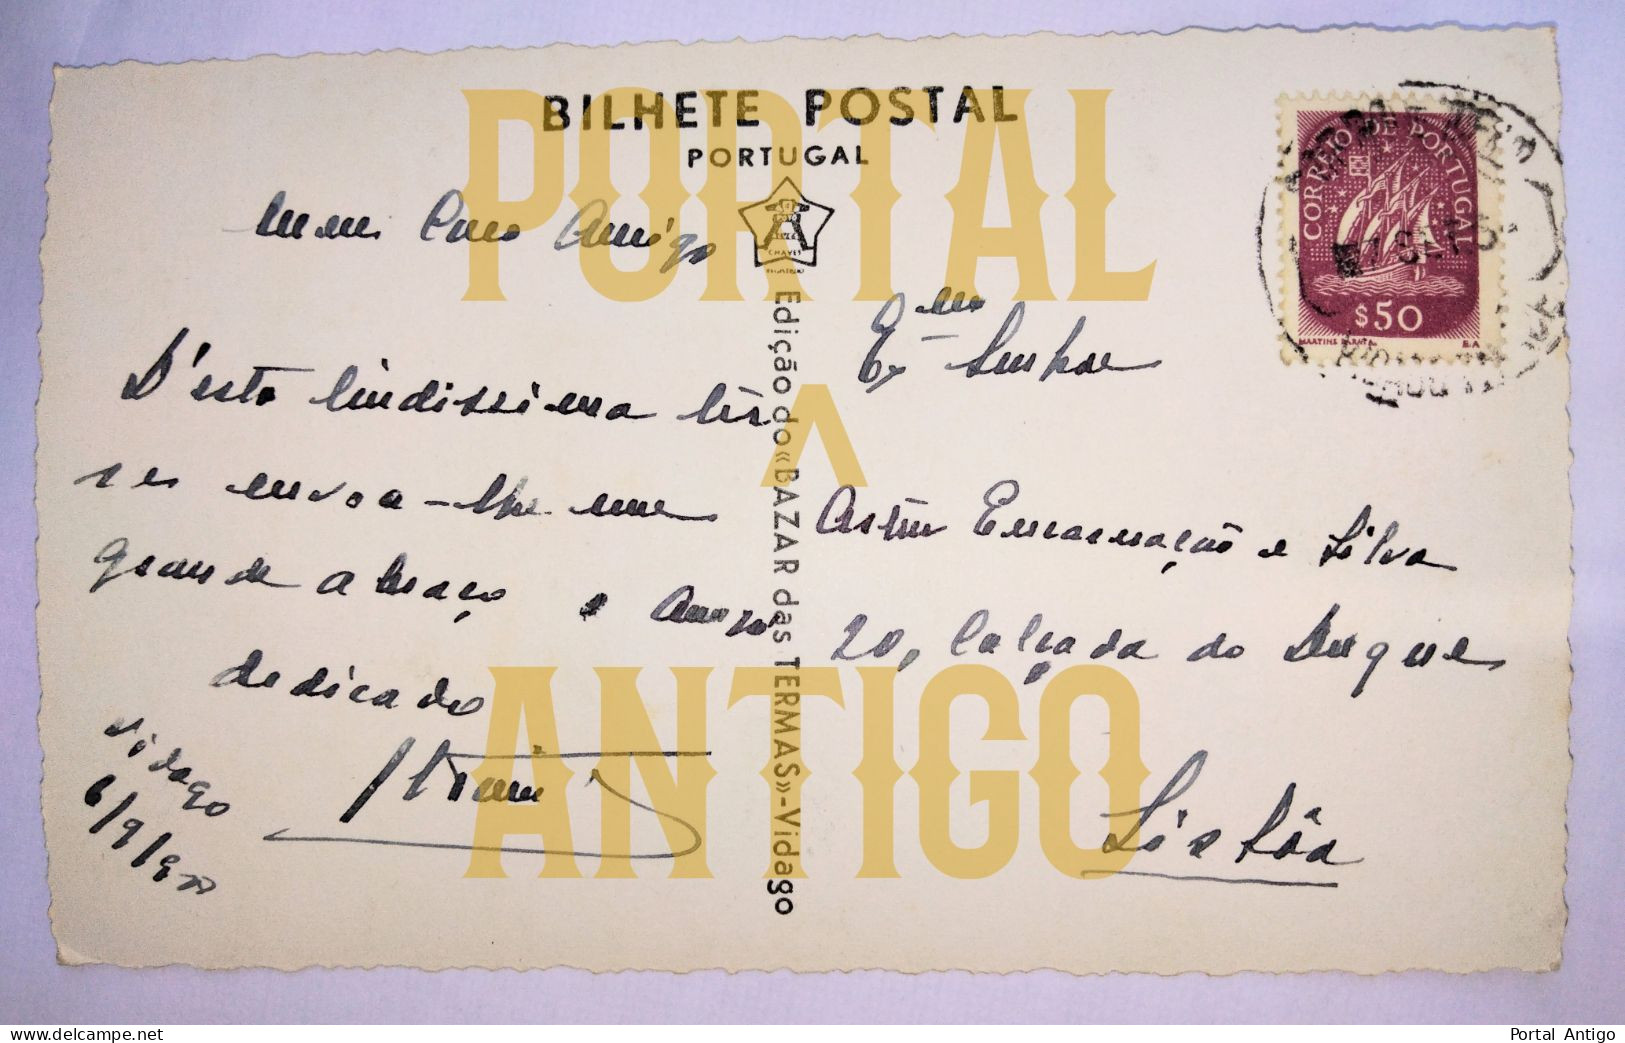 BILHETE POSTAL
PORTUGAL
CHAVES
Edição do «BAZAR das TERMAS» - Vidago
PORTAL
A
ANTIGO
Meu Caro Amigo
D'esta lindissima
envoa-lhe um
grande abraço o Amigo
dedicado
Vidago
6/9/50
Exmo Senhor
Astur Encarnação e Silva
20, Calçada do Duque
Lisbôa
CORREIO DE PORTUGAL
$50
MARTINS BARATA
7 SET 5
Portal Antigo
delcampe.net